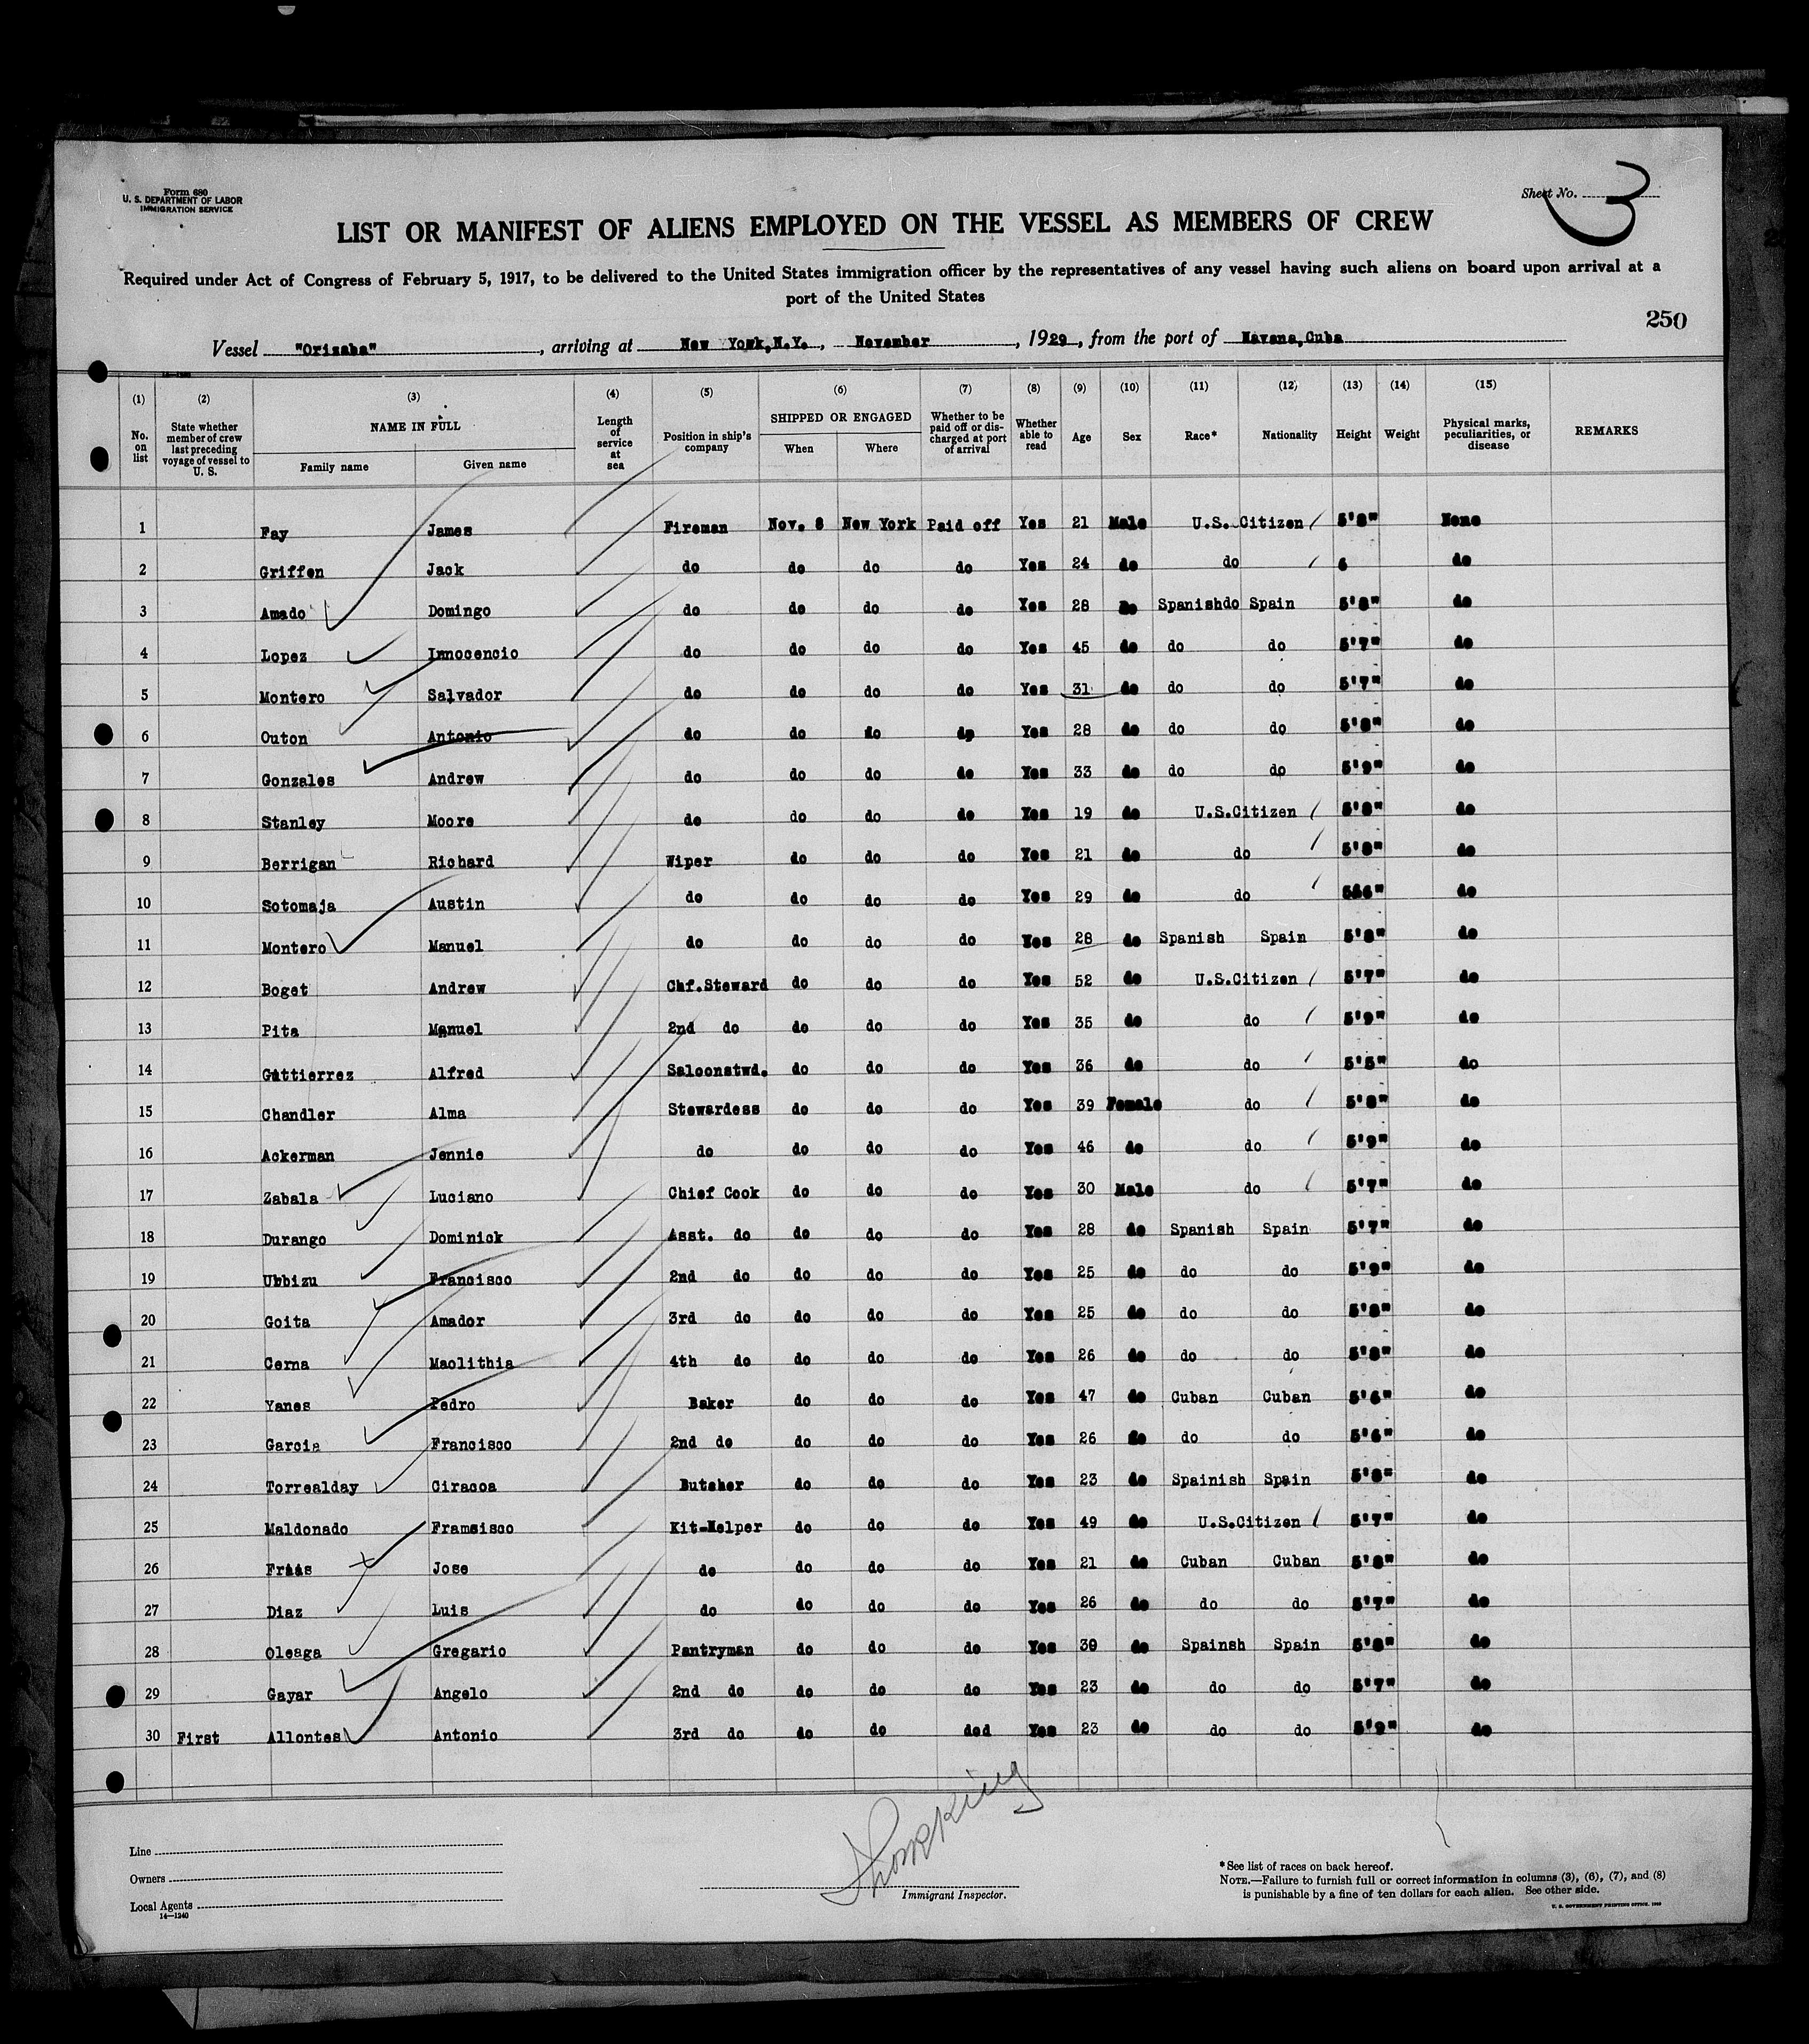 Form 680
U. S. DEPARTMENT OF LABOR
IMMIGRATION SERVICE
Sheet No. 3
LIST OR MANIFEST OF ALIENS EMPLOYED ON THE VESSEL AS MEMBERS OF CREW
Required under Act of Congress of February 5, 1917, to be delivered to the United States immigration officer by the representatives of any vessel having such aliens on board upon arrival at a
port of the United States
250
Vessel "Orizaba", arriving at New York,N.Y., November, 1929, from the port of Havana,Cuba
(1) (2) (3) (4) (5) (6) (7) (8) (9) (10) (11) (12) (13) (14) (15)
No. on list State whether member of crew last preceding voyage of vessel to U. S. NAME IN FULL Family name Given name Length of service at sea Position in ship's company SHIPPED OR ENGAGED When Where Whether to be paid off or discharged at port of arrival Whether able to read Age Sex Race* Nationality Height Weight Physical marks, peculiarities, or disease REMARKS
1 Fay James Fireman Nov. 8 New York Paid off Yes 21 Male U.S. Citizen 5'8" None
2 Griffen Jack do do do do Yes 24 do do 6 do
3 Amado Domingo do do do do Yes 28 Do Spanishdo Spain 5'8" do
4 Lopez Innocencio do do do do Yes 45 do do do 5'7" do
5 Montero Salvador do do do do Yes 31 do do do 5'7" do
6 Outon Antonio do do do do Yes 28 do do do 5'8" do
7 Gonzales Andrew do do do do Yes 33 do do do 5'9" do
8 Stanley Moore do do do do Yes 19 do U.S.Citizen 5'8" do
9 Berrigan Richard Wiper do do do Yes 21 do do 5'8" do
10 Sotomaja Austin do do do do Yes 29 do do 5&6" do
11 Montero Manuel do do do do Yes 28 do Spanish Spain 5'8" do
12 Boget Andrew Chf.Steward do do do Yes 52 do U.S.Citizen 5'7" do
13 Pita Manuel 2nd do do do do Yes 35 do do 5'9" do
14 Guttierrez Alfred Saloonstwd. do do do Yes 36 do do 5'5" do
15 Chandler Alma Stewardess do do do Yes 39 Female do 5'8" do
16 Ackerman Jennie do do do do Yes 46 do do 5'9" do
17 Zabala Luciano Chief Cook do do do Yes 30 Male do 5'7" do
18 Durango Dominick Asst. do do do do Yes 28 do Spanish Spain 5'7" do
19 Ubbizu Francisco 2nd do do do do Yes 25 do do do 5'9" do
20 Goita Amador 3rd do do do do Yes 25 do do do 5'8" do
21 Cerna Maolithia 4th do do do do Yes 26 do do do 5'8" do
22 Yanes Pedro Baker do do do Yes 47 do Cuban Cuban 5'6" do
23 Garcia Francisco 2nd do do do do Yes 26 do do do 5'6" do
24 Torrealday Ciracoa Butcher do do do Yes 23 do Spainish Spain 5'8" do
25 Maldonado Framsisco Kit-Helper do do do Yes 49 do U.S.Citizen 5'7" do
26 Frias Jose do do do do Yes 21 do Cuban Cuban 5'8" do
27 Diaz Luis do do do do Yes 26 do do do 5'7" do
28 Oleaga Gregario Pantryman do do do Yes 30 do Spainsh Spain 5'8" do
29 Gayar Angelo 2nd do do do do Yes 23 do do do 5'7" do
30 First Allontes Antonio 3rd do do do dod Yes 23 do do do 5'9" do
Line
Owners
Local Agents
14—1240
Immigrant Inspector.
*See list of races on back hereof.
NOTE.—Failure to furnish full or correct information in columns (3), (6), (7), and (8)
is punishable by a fine of ten dollars for each alien. See other side.